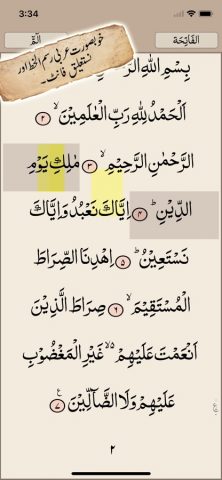 3:34
الٓمّٓ
الْفَاتِحَة
خوبصورت عربی رسم الخط اور
نستعلیق فانٹ۔
بِسْمِ اللّٰهِ الرَّ
اَلْحَمْدُ لِلّٰهِ رَبِّ الْعٰلَمِيْنَ ۙ ﴿۲﴾
الرَّحْمٰنِ الرَّحِيْمِ ۙ ﴿۳﴾ مٰلِكِ يَوْمِ
الدِّيْنِ ؕ ﴿۴﴾ اِيَّاكَ نَعْبُدُ وَاِيَّاكَ
نَسْتَعِيْنُ ؕ ﴿۵﴾ اِهْدِنَا الصِّرَاطَ
الْمُسْتَقِيْمَ ۙ ﴿۶﴾ صِرَاطَ الَّذِيْنَ
اَنْعَمْتَ عَلَيْهِمْ ۙ۬ غَيْرِ الْمَغْضُوْبِ
عَلَيْهِمْ وَلَا الضَّآلِّيْنَ ﴿۷﴾ ع
۲